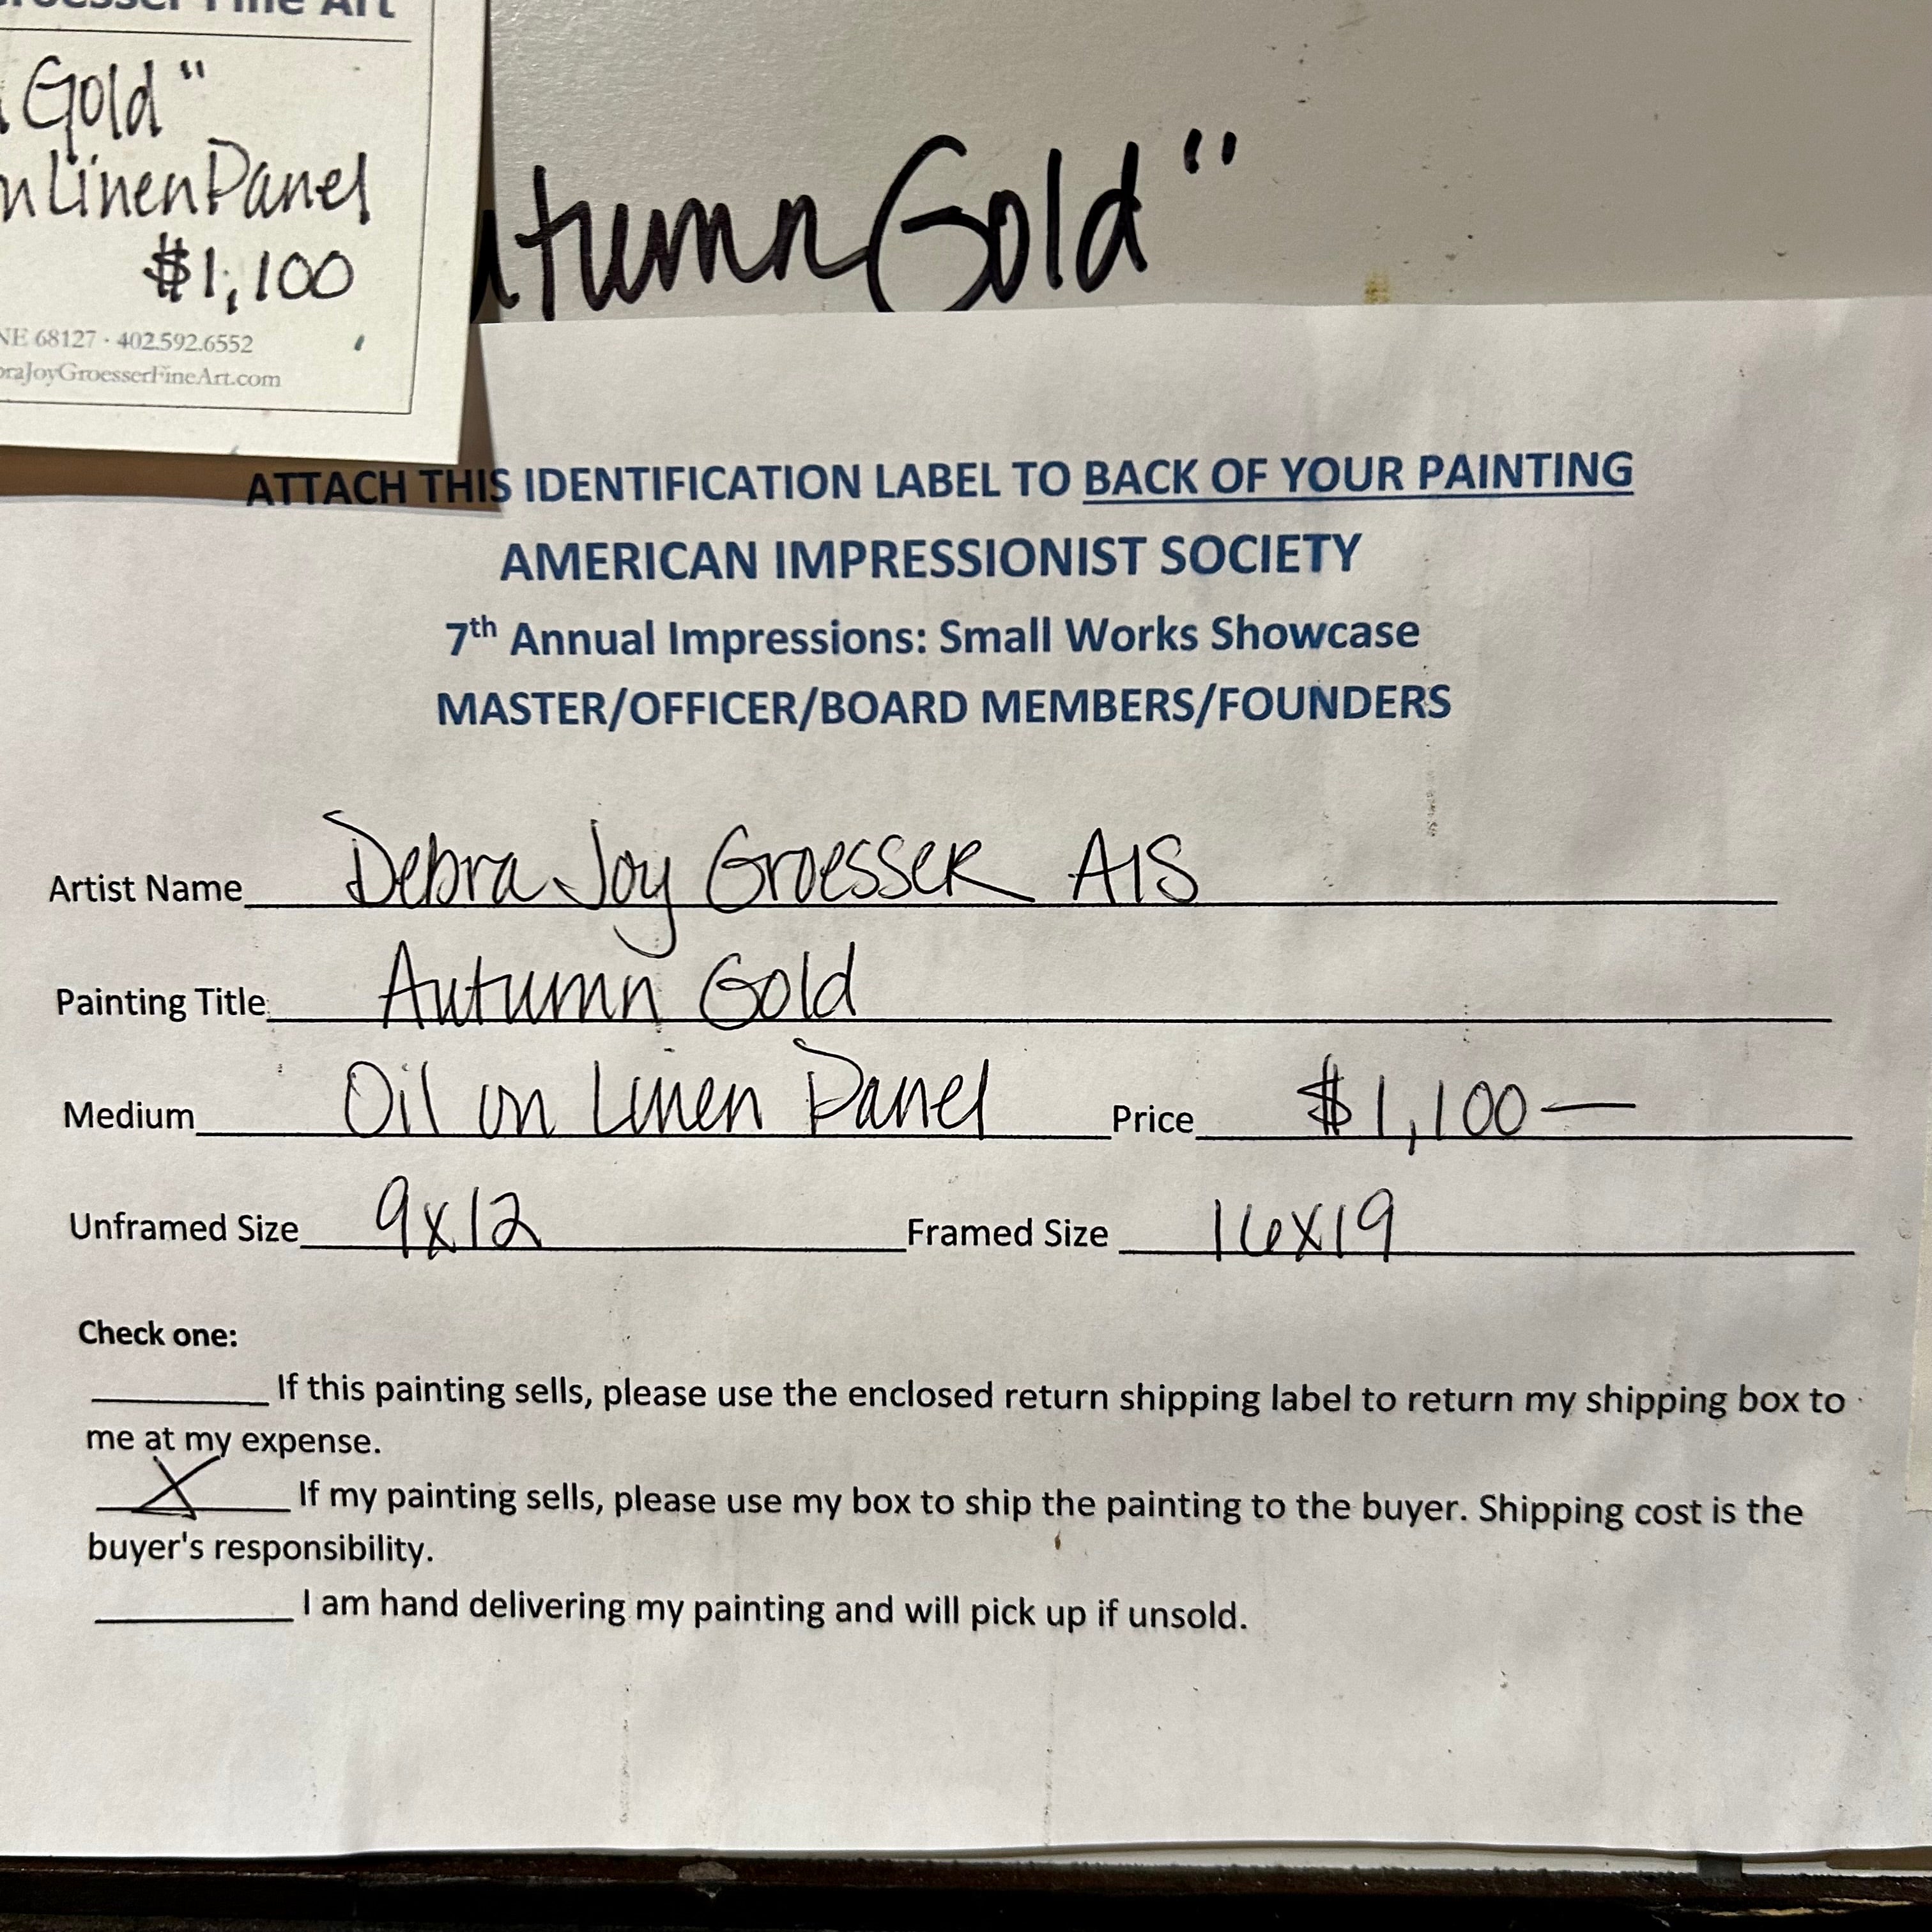 Fine Art
Gold"
Linen Panel
$1,100
NE 68127 · 402.592.6552
braJoyGroesserFineArt.com
utumn Gold"
ATTACH THIS IDENTIFICATION LABEL TO BACK OF YOUR PAINTING
AMERICAN IMPRESSIONIST SOCIETY
7th Annual Impressions: Small Works Showcase
MASTER/OFFICER/BOARD MEMBERS/FOUNDERS
Artist Name Debra Joy Groesser AIS
Painting Title Autumn Gold
Medium Oil on Linen Panel Price $1,100—
Unframed Size 9x12 Framed Size 16x19
Check one:
If this painting sells, please use the enclosed return shipping label to return my shipping box to
me at my expense.
X If my painting sells, please use my box to ship the painting to the buyer. Shipping cost is the
buyer's responsibility.
I am hand delivering my painting and will pick up if unsold.